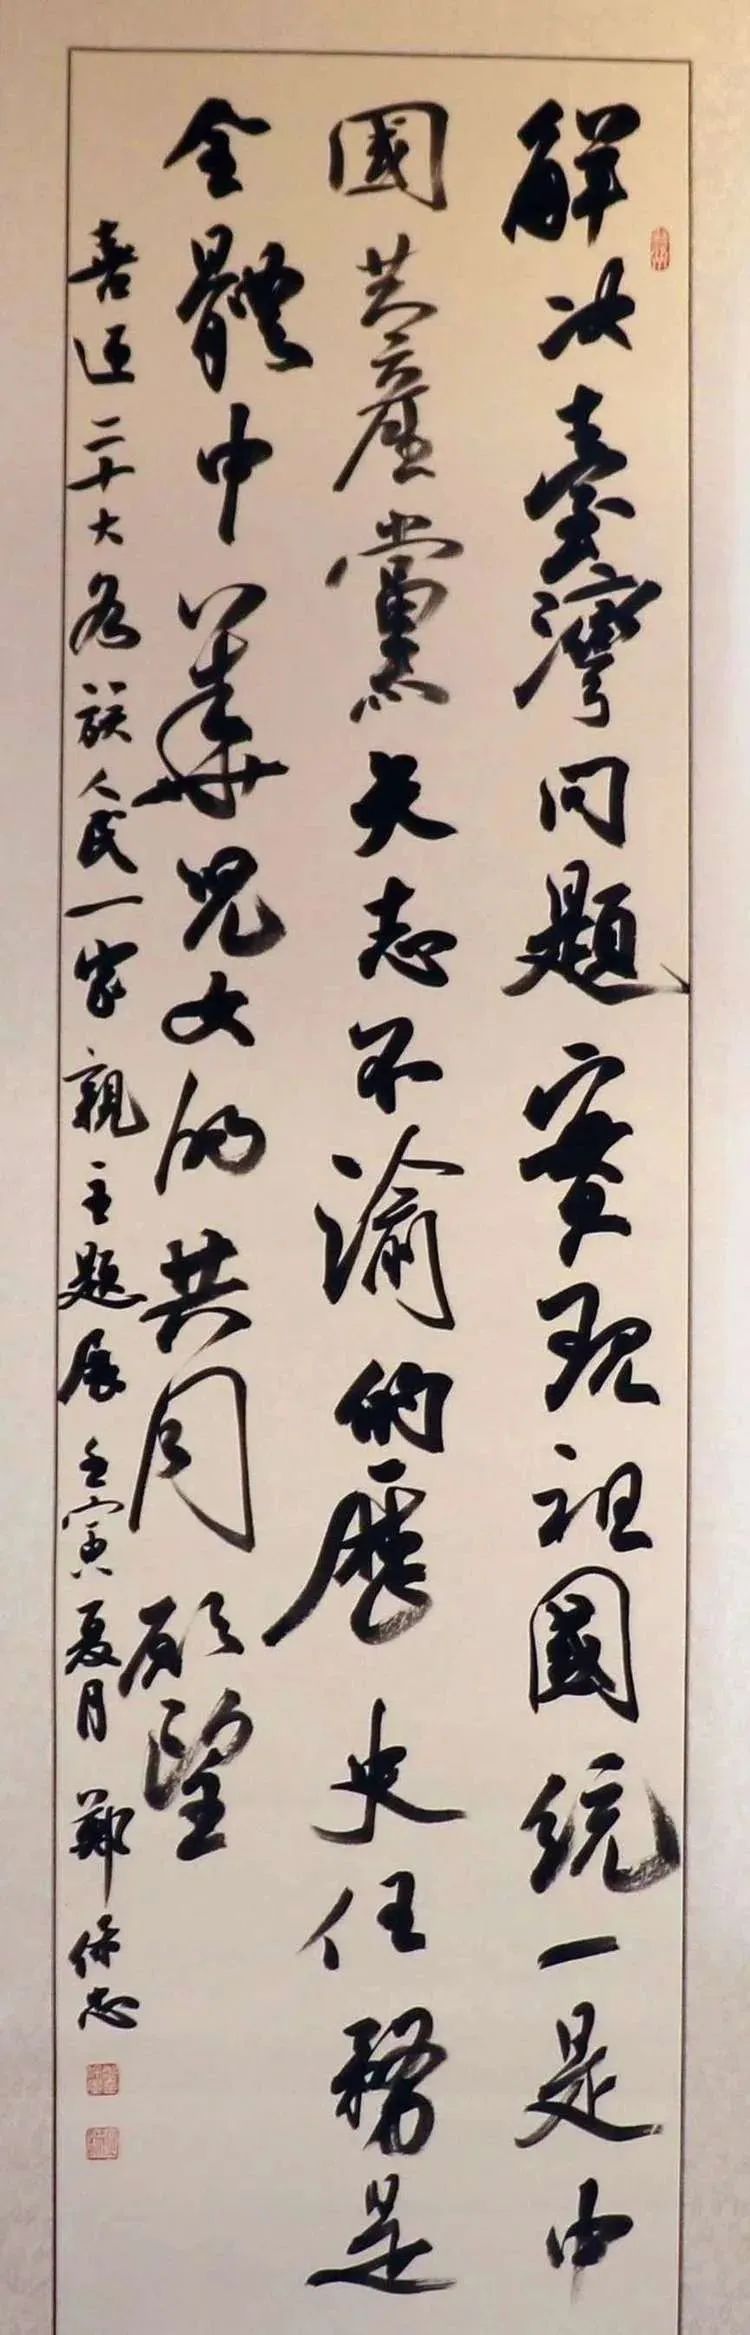 解决臺灣问题實現祖國统一是中
國共產黨矢志不渝的歷史任務是
全體中華兒女的共同願望
喜迎二十大各族人民一家親主题展 壬寅夏月 鄭保志